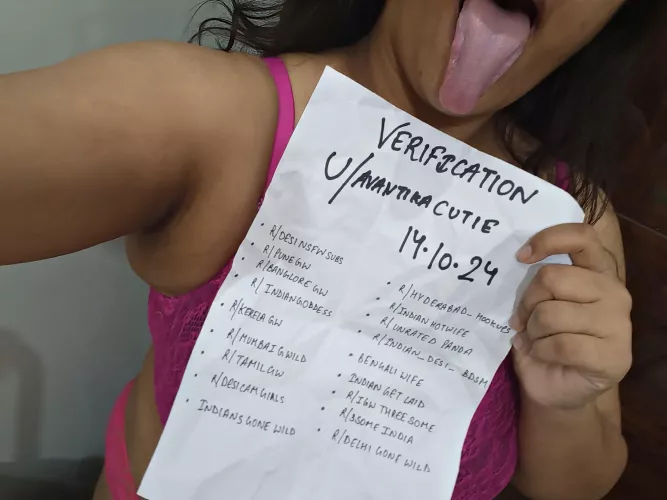 VERIFICATION
U/AVANTIKACUTIE
19.10.24
• R/DESINSFWSUBS
• R/PUNEGW
• R/BANGLOREGW
• R/INDIANGODDESS
• R/KERELAGW
• R/MUMBAIGWILD
• R/TAMILGW
• R/DESICAMGIRLS
• INDIANSGONE WILD
• R/HYDERABAD_HOOKUPS
• R/INDIANHOTWIFE
• R/UNRATED PANDA
• R/INDIAN_DESI_BDSM
• BENGALI WIFE
INDIAN GET LAID
• R/IGW THREESOME
• R/3SOME INDIA
• R/DELHI GONE WILD